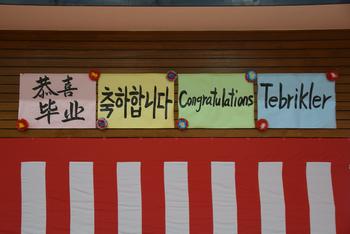 恭喜
毕业
축하합니다
Congratulations
Tebrikler